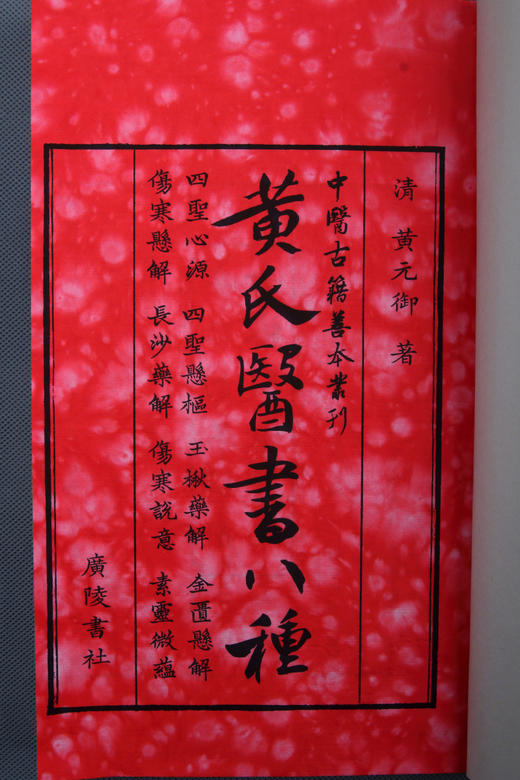 清 黃元御 著
中醫古籍善本叢刊
黃氏醫書八種
四聖心源 四聖懸樞 玉楸藥解 金匱懸解
傷寒懸解 長沙藥解 傷寒說意 素靈微蘊
廣陵書社